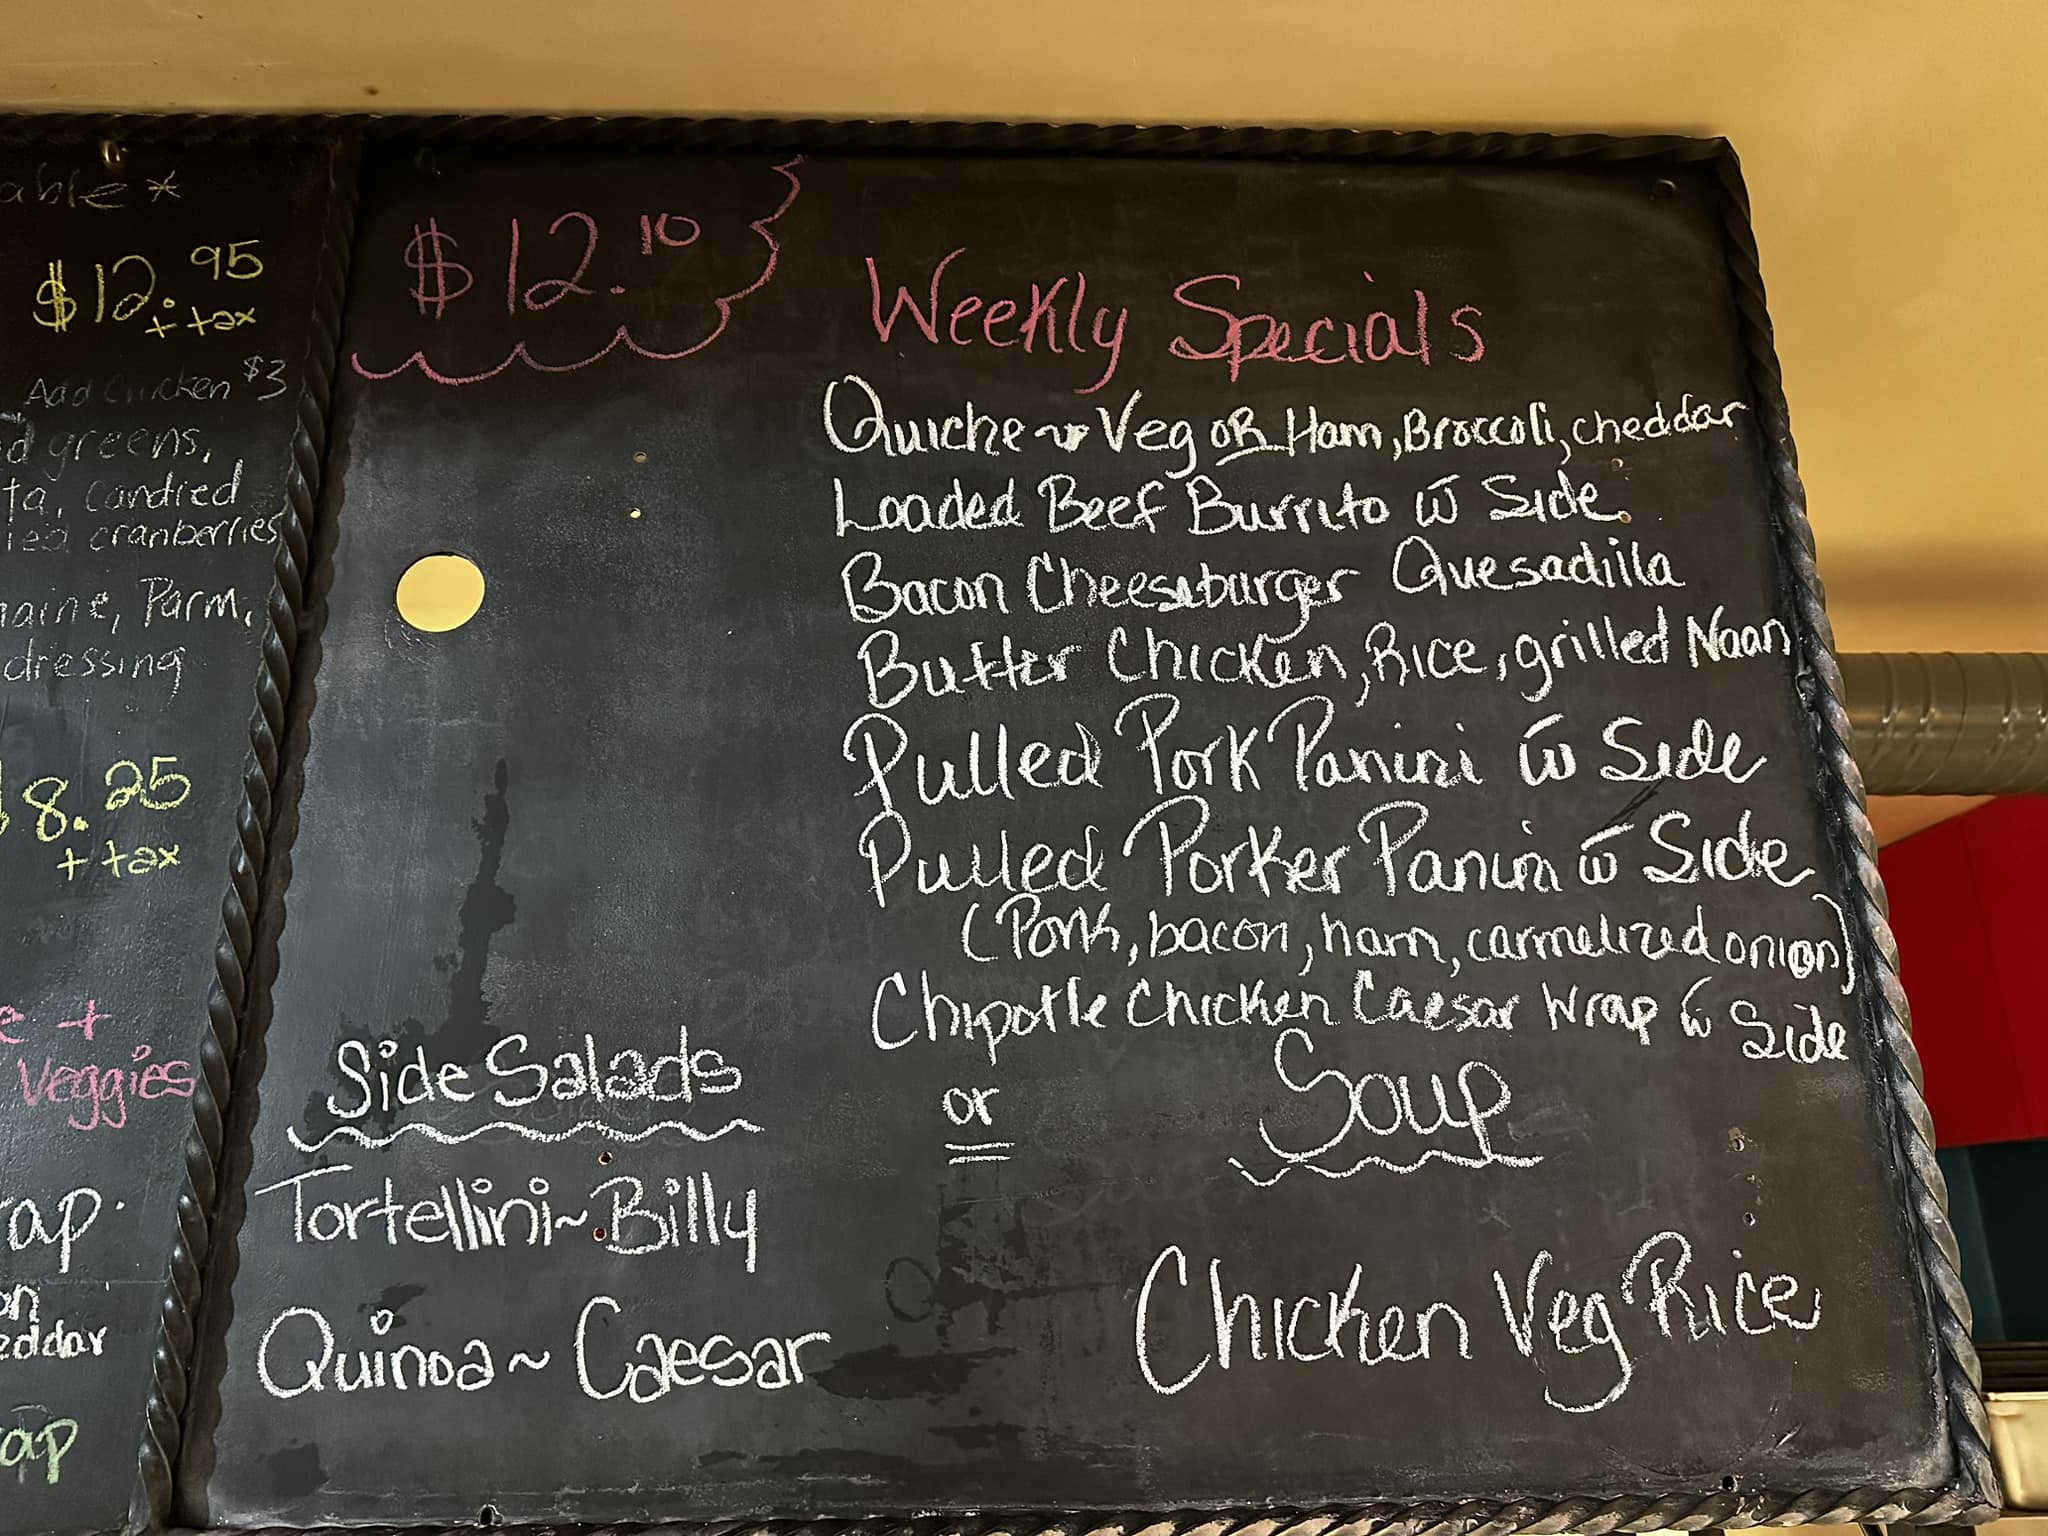 able *
$12.95
+ tax
Add Chicken $3
greens,
candied
cranberries
Parm,
dressing
8.25
+ tax
e +
Veggies
ap
on
eddar
ap
$12.10
Weekly Specials
Quiche ~ Veg OR Ham, Broccoli, cheddar
Loaded Beef Burrito w̄ Side
Bacon Cheeseburger Quesadilla
Butter Chicken, Rice, grilled Naan
Pulled Pork Panini w̄ Side
Pulled Porker Panini w̄ Side
(Pork, bacon, ham, carmelized onion)
Chipotle Chicken Caesar Wrap w̄ Side
Side Salads
Tortellini ~ Billy
Quinoa ~ Caesar
or
Soup
Chicken Veg Rice